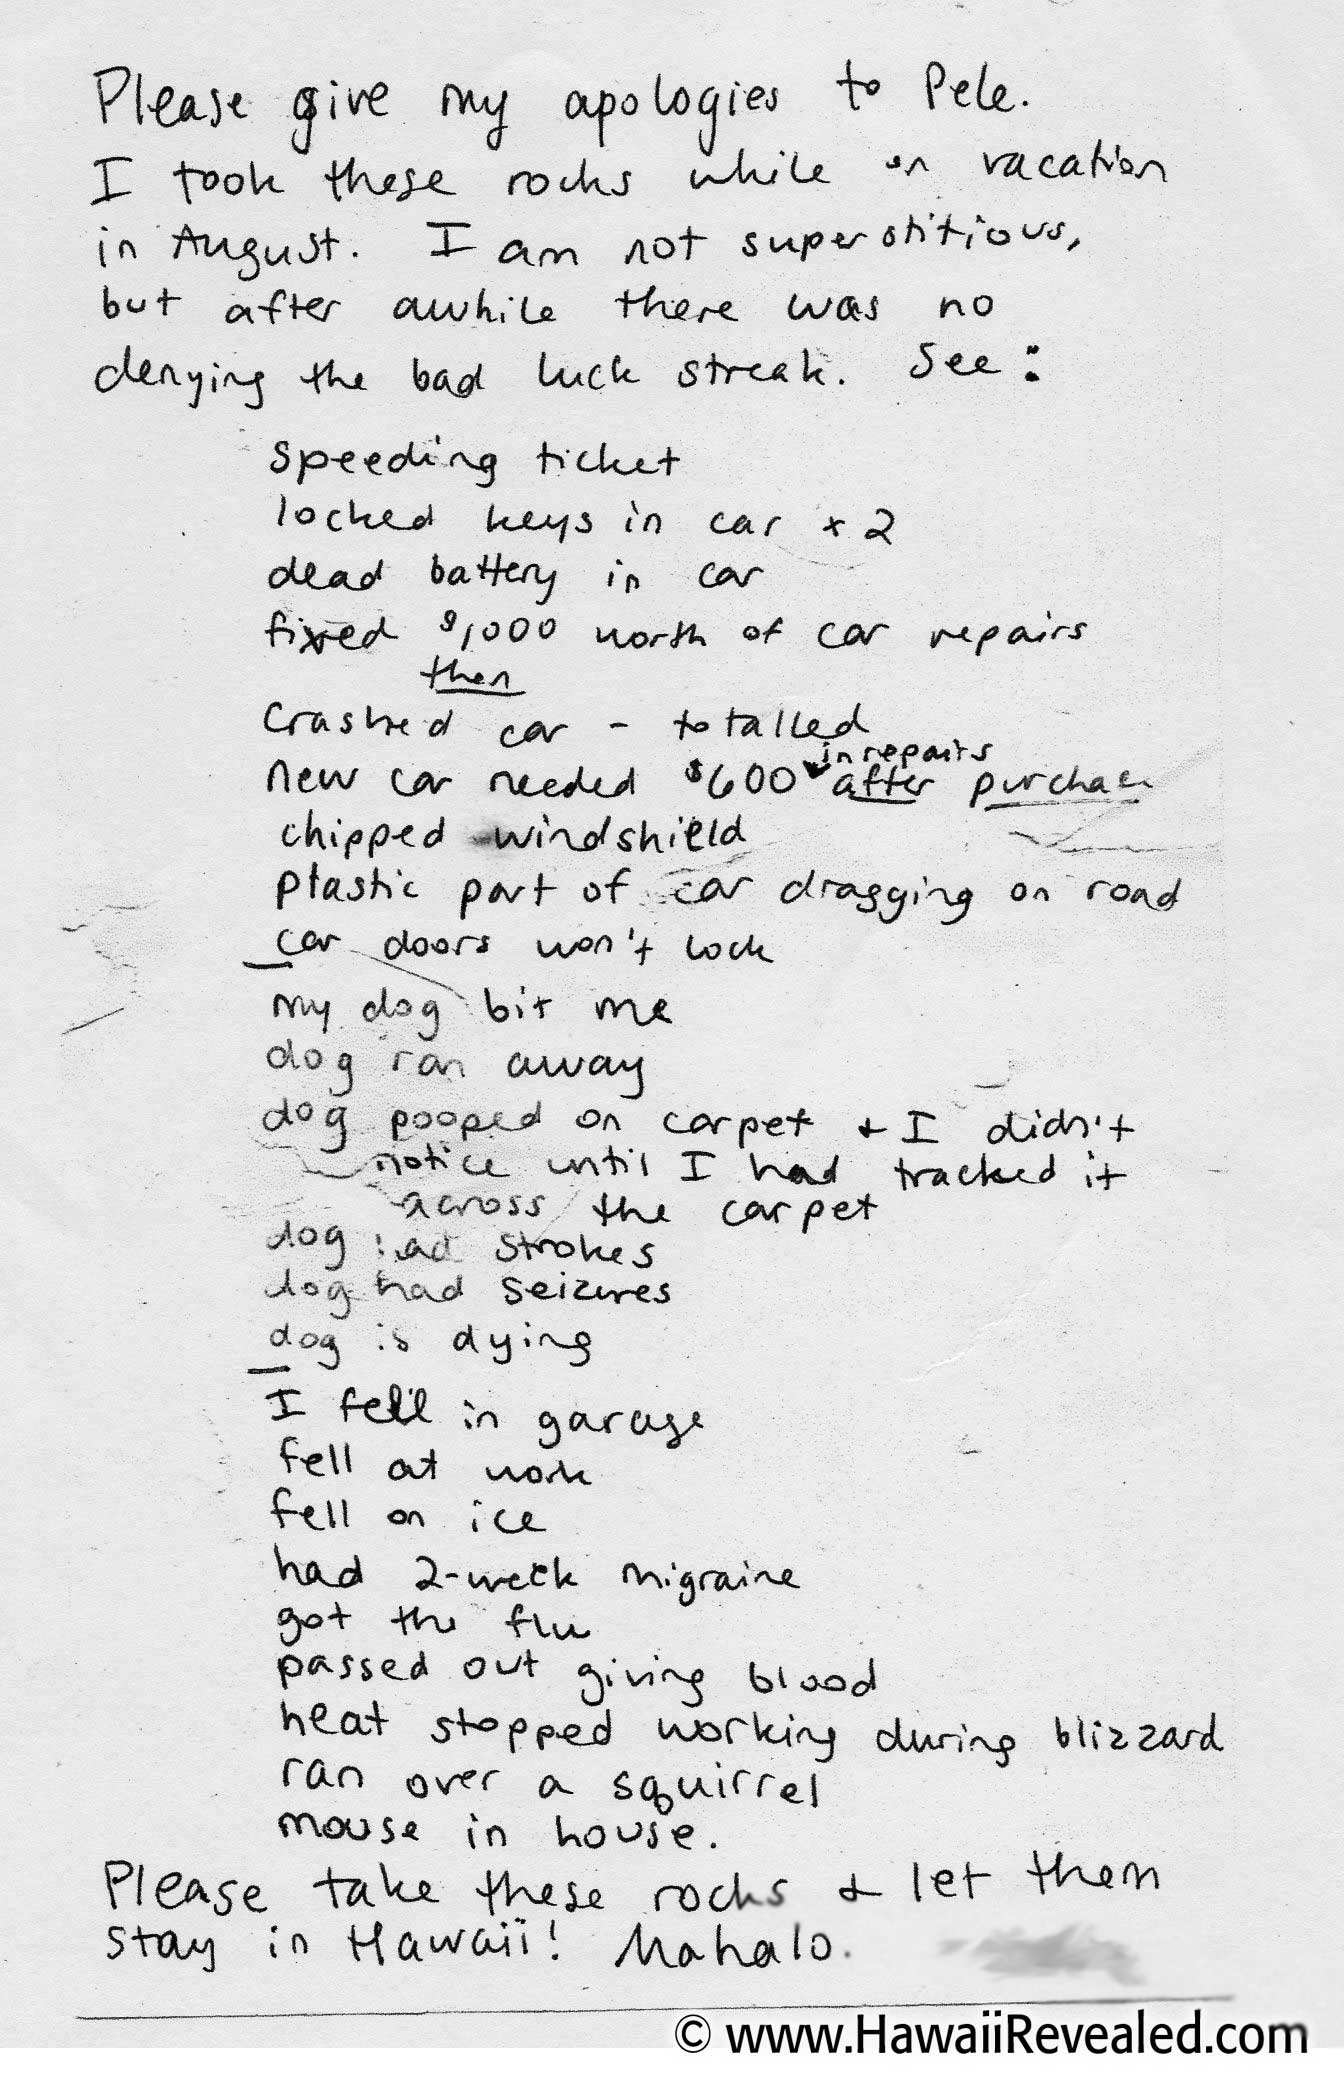 Please give my apologies to Pele.
I took these rocks while on vacation
in August. I am not superstitious,
but after awhile there was no
denying the bad luck streak. See:
speeding ticket
locked keys in car x 2
dead battery in car
fixed $1,000 worth of car repairs
then
crashed car - totalled
in repairs
new car needed $600 after purchase
chipped windshield
plastic part of car dragging on road
car doors won't lock
my dog bit me
dog ran away
dog pooped on carpet & I didn't
notice until I had tracked it
across the carpet
dog had strokes
dog had seizures
dog is dying
I fell in garage
fell at work
fell on ice
had 2-week migraine
got the flu
passed out giving blood
heat stopped working during blizzard
ran over a squirrel
mouse in house.
Please take these rocks & let them
stay in Hawaii! Mahalo.
© www.HawaiiRevealed.com